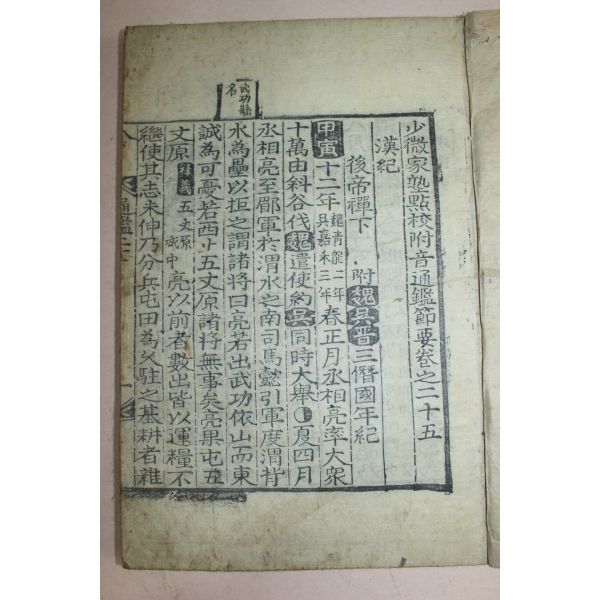 少微家塾點校附音通鑑節要卷之二十五
漢紀
後帝禪下 附魏吳晉三僭國年紀
甲寅十二年魏青龍二年吳嘉禾三年春正月丞相亮率大衆
十萬由斜谷伐魏遣使約吳同時大舉夏四月
丞相亮至郿軍於渭水之南司馬懿引軍度渭背
水為壘以拒之謂諸將曰亮若出武功依山而東
誠為可憂若西上五丈原諸將無事矣亮果屯五
丈原釋義五丈原 中亮以前者數出皆以運糧不
繼使其志未伸乃分兵屯田為久駐之基耕者雜
通鑑二十
武功縣
名